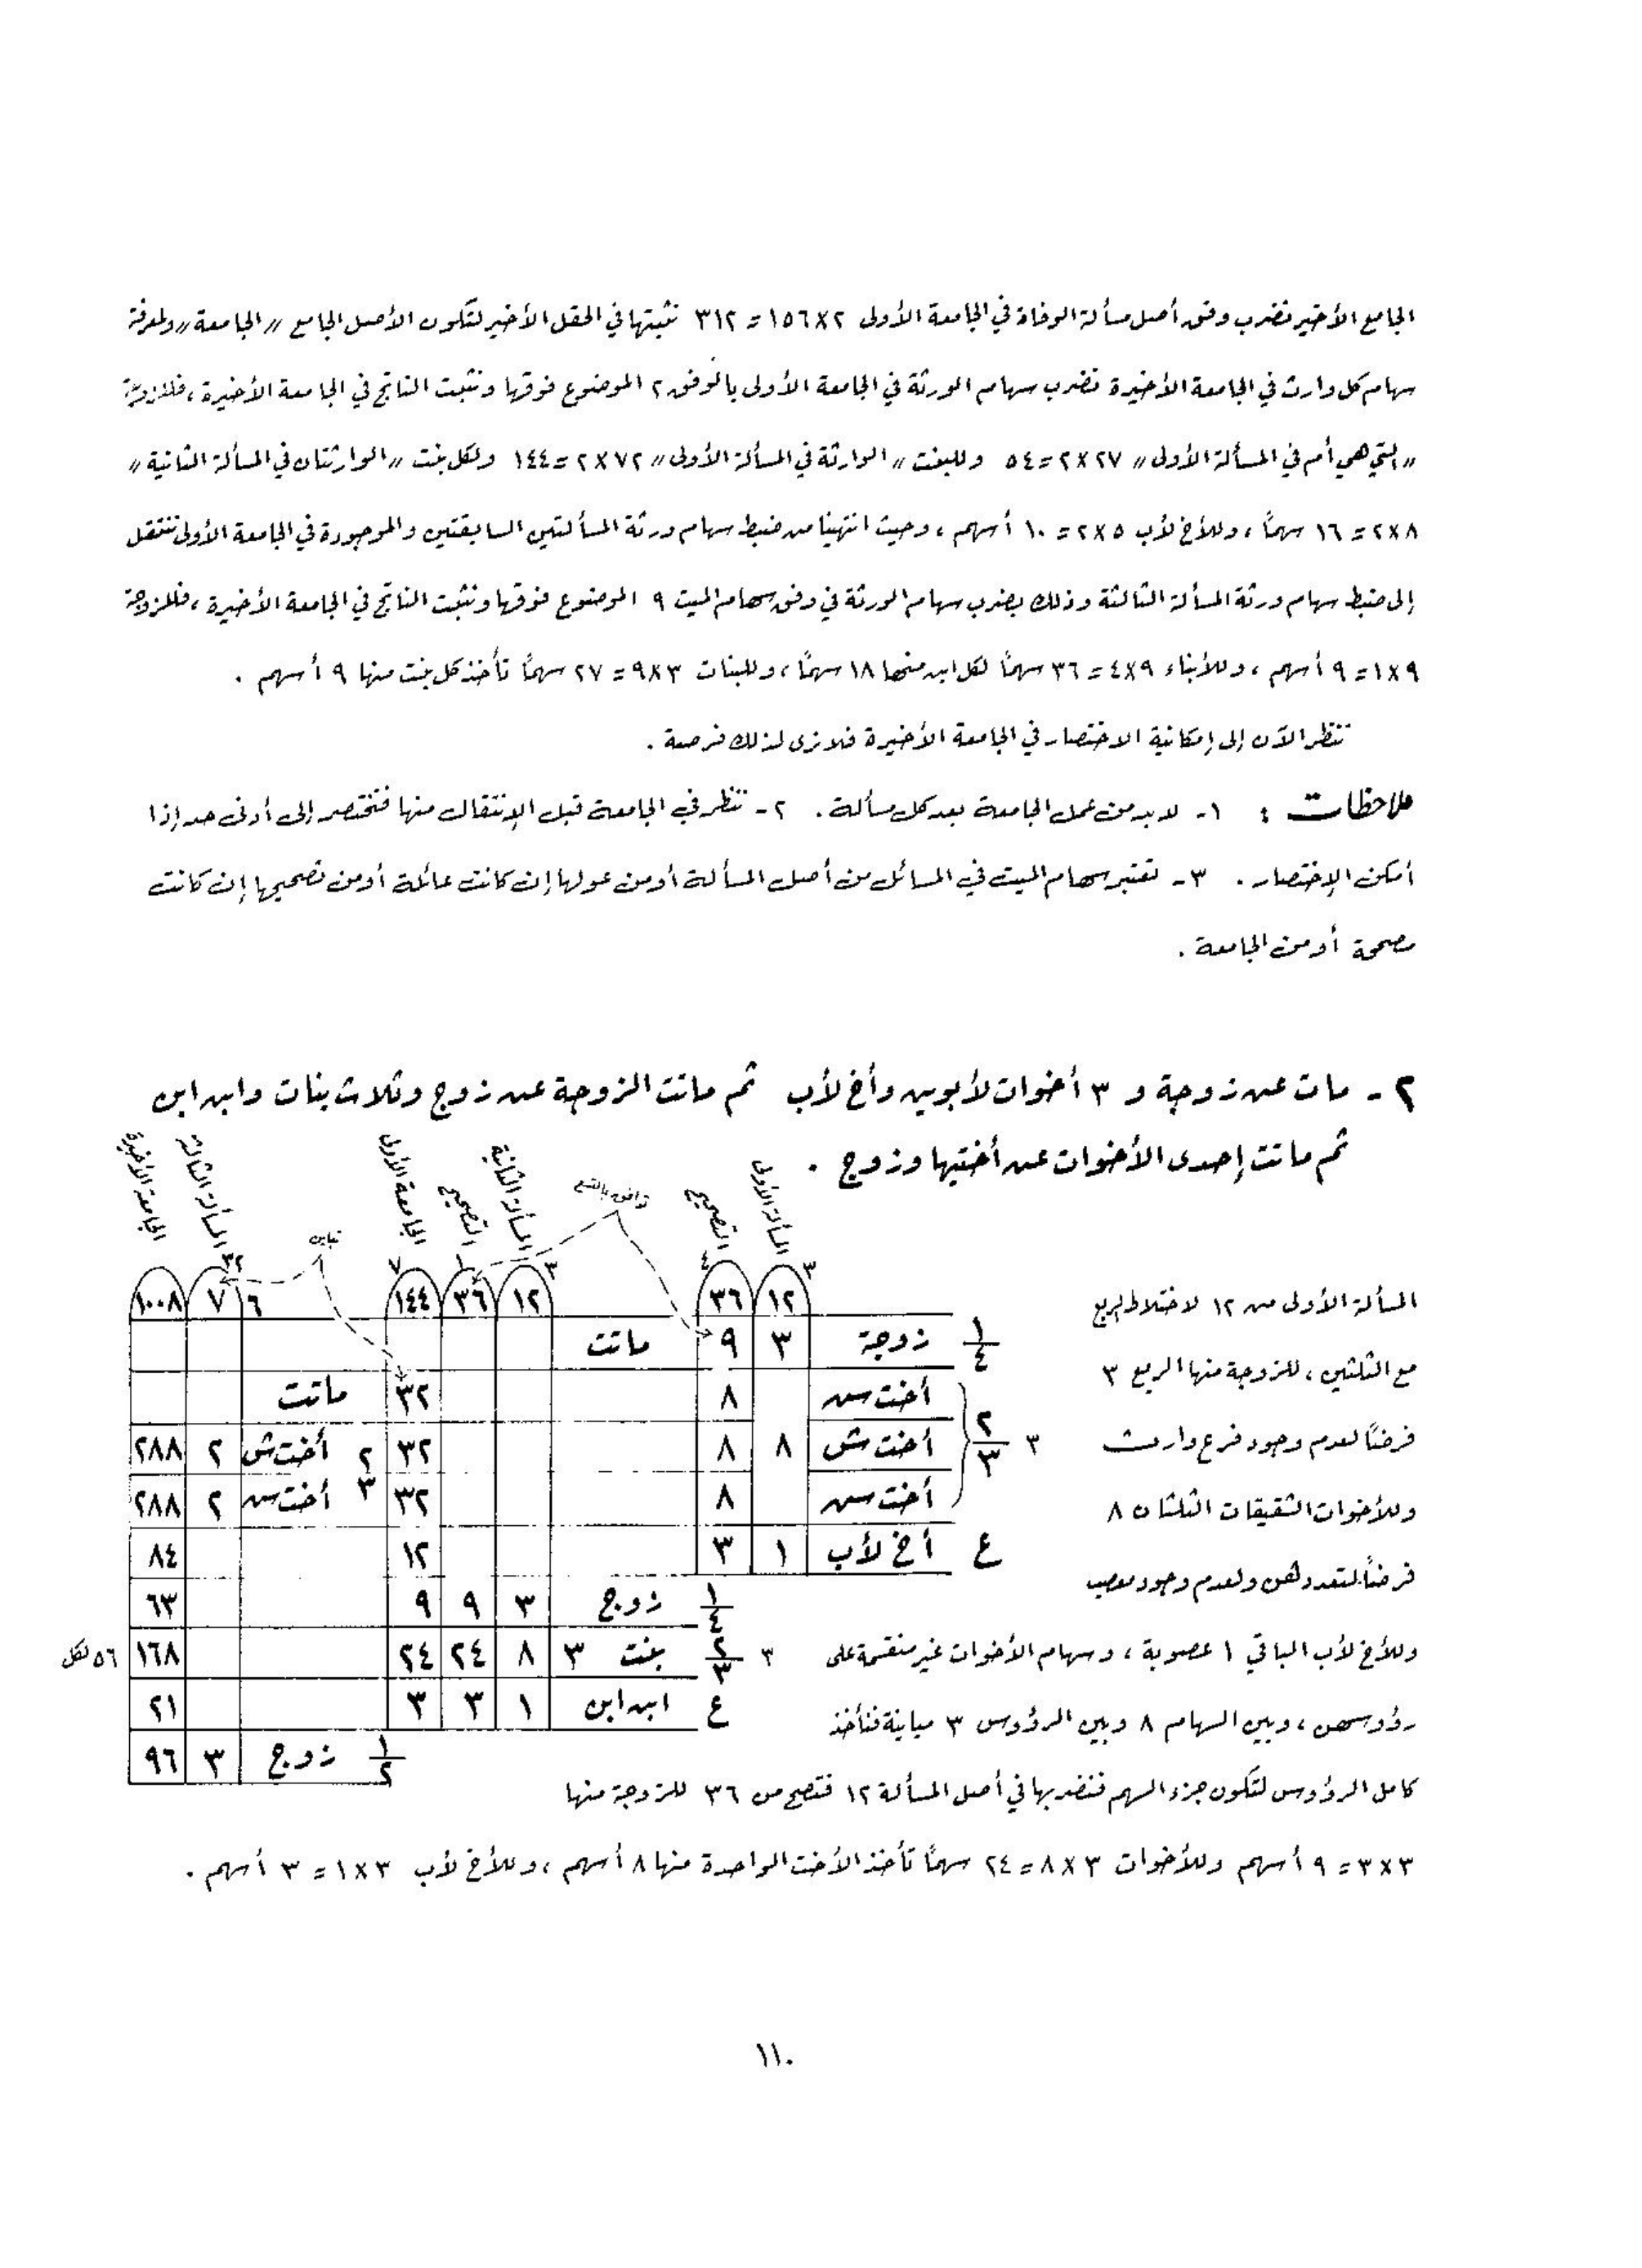 الجامع الأخير فنضرب وفق أصل مسألة الوفاة في الجامعة الأولى ٢×١٥٦ = ٣١٢ نثبتها في الحقل الأخير لتكون الأصل الجامع "الجامعة" ولمعرفة
سهام كل وارث في الجامعة الأخيرة نضرب سهام الورثة في الجامعة الأولى بالوفق ٢ الموضوع فوقها ونثبت الناتج في الجامعة الأخيرة ، فللزوجة
"التي هي أم في المسألة الأولى" ٢٧×٢=٥٤ وللبنت "الوارثة في المسألة الأولى" ٧٢×٢=١٤٤ ولكل بنت "الوارثتان في المسألة الثانية"
٨×٢=١٦ سهمًا ، وللأخ لأب ٥×٢=١٠ أسهم ، وحيث انتهينا من ضبط سهام ورثة المسألتين السابقتين والموجودة في الجامعة الأولى ننتقل
إلى ضبط سهام ورثة المسألة الثالثة وذلك بضرب سهام الورثة في وفق سهام الميت ٩ الموضوع فوقها ونثبت الناتج في الجامعة الأخيرة ، فللزوجة
٩×١=٩ أسهم ، وللأبناء ٩×٤=٣٦ سهمًا لكل ابن منهما ١٨ سهمًا ، وللبنات ٣×٩=٢٧ سهمًا تأخذ كل بنت منها ٩ أسهم .
ننظر الآن إلى إمكانية الاختصار في الجامعة الأخيرة فلا نرى لذلك فرصة .
ملاحظات : ١- لابد من عمل الجامعة بعد كل مسألة . ٢- ننظر في الجامعة قبل الإنتقال منها فنختصر إلى أدنى حد إذا
أمكن الإختصار . ٣- تعتبر سهام الميت في المسائل من أصل المسألة أو من عولها إن كانت عائلة أو من تصحيحها إن كانت
مصححة أو من الجامعة .
٢- مات عن زوجة و ٣ أخوات لأبوين وأخ لأب ثم ماتت الزوجة عن زوج وثلاث بنات وابن ابن
ثم ماتت إحدى الأخوات عن أختيها وزوج .
المسألة الأولى التصحيح توافق بالتسع المسألة الثانية التصحيح الجامعة الأولى تباين المسألة الثالثة الجامعة الأخيرة
٣ ٤ ٣ ١ ٧ ٣٢
١٢ ٣٦ ١٢ ٣٦ ١٤٤ ٦ ٧ ١٠٠٨
١/٤ زوجة ٣ ٩ ماتت
أخت ش ٨ ٣٢ ماتت
٣ ٢/٣ أخت ش ٨ ٨ ٣٢ ٢/٣ أخت ش ٢ ٢٨٨
أخت ش ٨ ٣٢ أخت ش ٢ ٢٨٨
ع أخ لأب ١ ٣ ١٢ ٨٤
١/٤ زوج ٣ ٩ ٩ ٦٣
٣ ٢/٣ بنت ٣ ٨ ٢٤ ٢٤ ١٦٨ ٥٦ لكل
ع ابن ابن ١ ٣ ٣ ٢١
١/٢ زوج ٣ ٩٦
المسألة الأولى من ١٢ لاختلاط الربع
مع الثلثين ، للزوجة منها الربع ٣
فرضًا لعدم وجود فرع وارث
وللأخوات الشقيقات الثلثان ٨
فرضًا لتعددهن ولعدم وجود معصب
وللأخ لأب الباقي ١ عصوبة ، وسهام الأخوات غير منقسمة على
رؤوسهن ، وبين السهام ٨ وبين الرؤوس ٣ مباينة فنأخذ
كامل الرؤوس لتكون جزء السهم فنضربها في أصل المسألة ١٢ فتصح من ٣٦ للزوجة منها
٣×٣=٩ أسهم وللأخوات ٣×٨=٢٤ سهمًا تأخذ الأخت الواحدة منها ٨ أسهم ، وللأخ لأب ٣×١=٣ أسهم .
١١٠